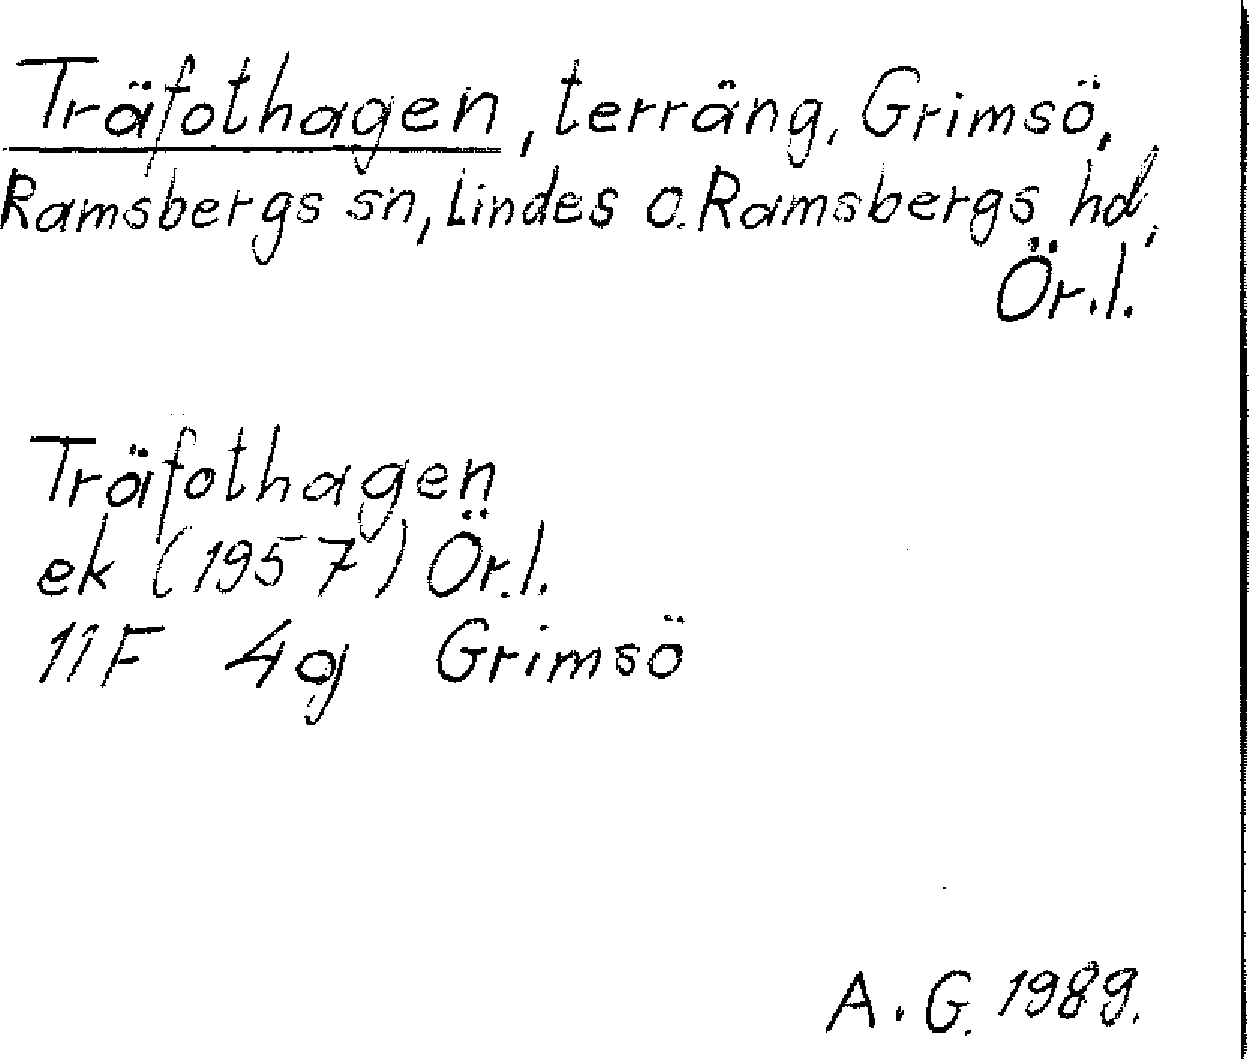 Träfothagen, terräng, Grimsö,
Ramsbergs sn, Lindes o. Ramsbergs hd,
Ör.l.
Träfothagen
ek (1957) Ör.l.
11F 4g Grimsö
A.G. 1989.